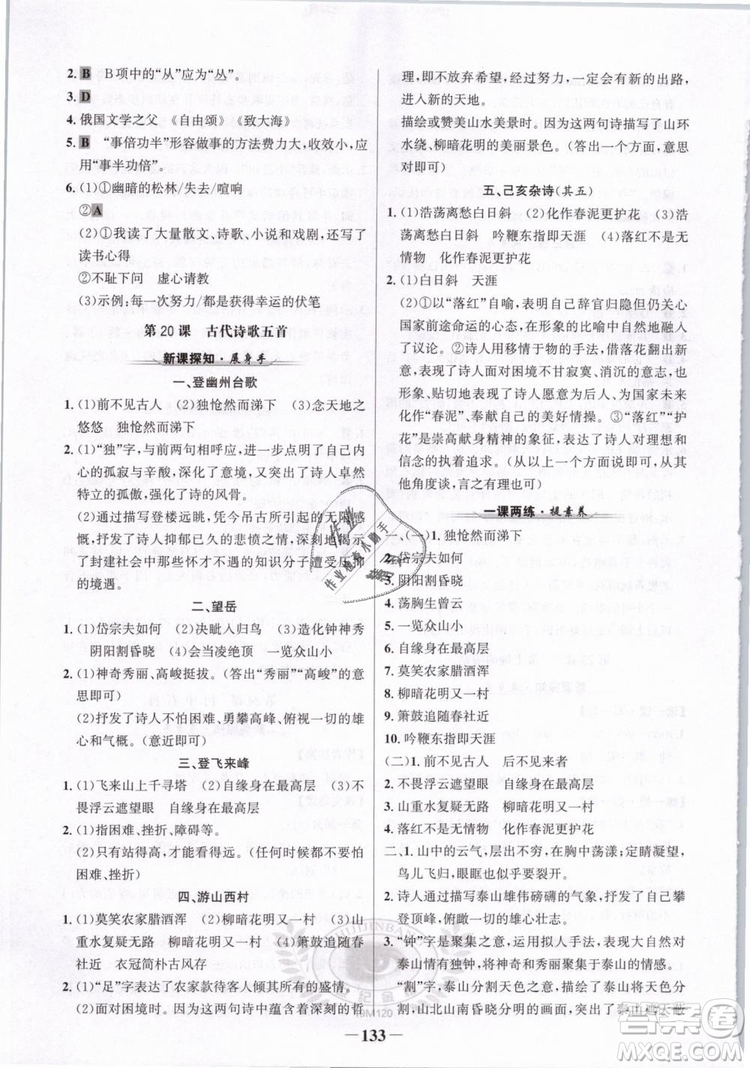 2. B B项中的“从”应为“丛”。
3. D
4. 俄国文学之父 《自由颂》 《致大海》
5. B “事倍功半”形容做事的方法费力大,收效小,应
用“事半功倍”。
6. (1)①幽暗的松林/失去/喧响
②A
(2)①我读了大量散文、诗歌、小说和戏剧,还写了
读书心得
②不耻下问 虚心请教
(3)示例:每一次努力,都将获得幸运的伏笔
第20课 古代诗歌五首
新课探知·展身手
一、登幽州台歌
1. (1)前不见古人 (2)独怆然而涕下 (3)念天地之
悠悠 独怆然而涕下
2. (1)“独”字,与前两句相呼应,进一步点明了自己内
心的孤寂与辛酸,深化了意境,又突出了诗人卓然
特立的孤傲,强化了诗的风骨。
(2)通过描写登楼远眺,凭今吊古所引起的无限感
慨,抒发了诗人抑郁已久的悲愤之情,深刻地揭示了
封建社会中那些怀才不遇的知识分子遭受压抑
的境遇。
二、望岳
1. (1)岱宗夫如何 (2)决眦入归鸟 (3)造化钟神秀
阴阳割昏晓 (4)会当凌绝顶 一览众山小
2. (1)神奇秀丽、高峻挺拔。(答出“秀丽”“高峻”的意
思即可)
(2)抒发了诗人不怕困难、勇攀高峰、俯视一切的雄
心。(意近即可)
三、登飞来峰
1. (1)飞来山上千寻塔 (2)自缘身在最高层 (3)不
畏浮云遮望眼 自缘身在最高层
2. (1)指困难、挫折、障碍等。
(2)只有站得高,才能看得远。(任何时候都不要怕
困难、挫折)
四、游山西村
1. (1)莫笑农家腊酒浑 (2)柳暗花明又一村 (3)山
重水复疑无路 柳暗花明又一村 (4)箫鼓追随春
社近 衣冠简朴古风存
2. (1)“足”字表达了农家款待客人倾其所有的盛情。
(2)面对困境时。因为这两句诗蕴含着深刻的哲
理,即不放弃希望,坚持以往,一定会有新的出路,
进入新的天地。
描绘或赞美山水美景时。因为这两句诗描写了山环
水绕、柳暗花明的美丽景色。(答出其中一点,意
思对即可)
五、己亥杂诗(其五)
1. (1)浩荡离愁白日斜 (2)化作春泥更护花
(3)浩荡离愁白日斜 吟鞭东指即天涯 (4)落红不是无
情物 化作春泥更护花
2. (1)白日斜 天涯
(2)①以“落红”自喻,表明自己辞官归隐仍关心
国家前途命运的一腔热情,即由抒发离别之情转
入了议论。②诗人用移情于物的手法,借落花翻
出新意,表现诗人面对困境不甘寂寞、消沉的意志,
形象、贴切地表达了诗人愿意为后人、为国家未来
化作“春泥”、奉献自己的美好情操。③“落红”“护
花”是崇高献身精神的象征,表达了诗人对理想与
信念的执着追求。(从以上一个方面回答即可。如
有其他角度,言之有理也可)
一课两练·提素养
一、(一)1. 独怆然而涕下
2. 岱宗夫如何
3. 阴阳割昏晓
4. 荡胸生曾云
5. 一览众山小
6. 自缘身在最高层
7. 莫笑农家腊酒浑
8. 柳暗花明又一村
9. 箫鼓追随春社近
10. 吟鞭东指即天涯
(二)1. 前不见古人 后不见来者
2. 不畏浮云遮望眼 自缘身在最高层
3. 山重水复疑无路 柳暗花明又一村
4. 落红不是无情物 化作春泥更护花
二、1. 山中的云气,层出不穷,在心胸中荡漾;定睛追寻,
鸟儿飞归,眼眶似乎要裂开。
2. 诗人通过描写泰山雄伟磅礴的气象,抒发了自己攀
登顶峰、俯视一切的雄心壮志。
3. “钟”字是聚集之意,运用拟人手法,表现了大自然对
泰山情有独钟,把神奇和秀丽聚集在泰山的景象。
“割”字形象地写出了泰山高耸入云,遮天蔽日,分
割了山北山南昏晓分明的画面,突出了泰山遮天蔽
133